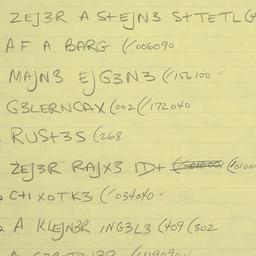 ZEJ3R A S+EJN3 S+TETL (4
A F A BARG (/006090
MAJN3 EJG3N3 (/156100 ✓
G3LERNCAX (002 (/172040
RUS+3S (268
ZEJ3R RAJX3 ID+ (/0100
C+I XOTK3 (/034040 ✓
A KLEJN3R ING3L3 (409 (302